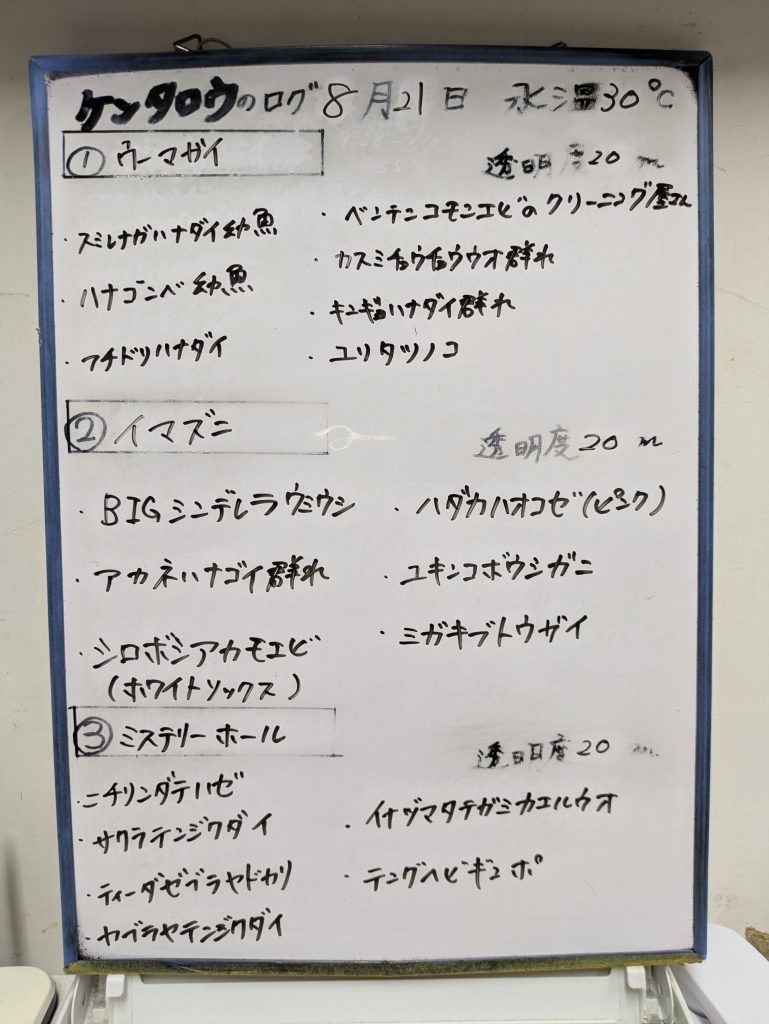 ケンタロウのログ 8月21日 水温30℃
① ウーマガイ
透明度20m
・スミレナガハナダイ幼魚
・ハナゴンベ幼魚
・フチドリハナダイ
・ベンテンコモンエビのクリーニング屋さん
・カスミチョウチョウウオ群れ
・キンギョハナダイ群れ
・ユリタツノコ
② イマズニ
透明度20m
・BIGシンデレラウミウシ
・アカネハナゴイ群れ
・シロボシアカモエビ
(ホワイトソックス)
・ハダカハオコゼ(ピンク)
・ユキンコボウシガニ
・ミガキブトウガイ
③ ミステリーホール
透明度20m
・ニチリンダテハゼ
・サクラテンジクダイ
・ティーダゼブラヤドカリ
・ヤブラヤテンジクダイ
・イナヅマタテガミカエルウオ
・テングヘビギンポ